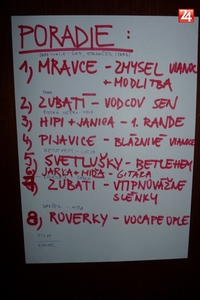 24
PORADIE :
1, MRAVCE - ZMYSEL VIANOC
+ MODLITBA
2, ZUBATÍ - VODCOV SEN
3, HIPI + JANICA - 1. RANDE
4, PIJAVICE - BLÁZNIVÉ VIANOCE
5, SVETLUŠKY - BETLEHEM
JARKA + MIŠA - GITARA
ZUBATÍ - VTIPNOVÁŽNE
SCÉNKY
8, ROVERKY - VOCAPEOPLE